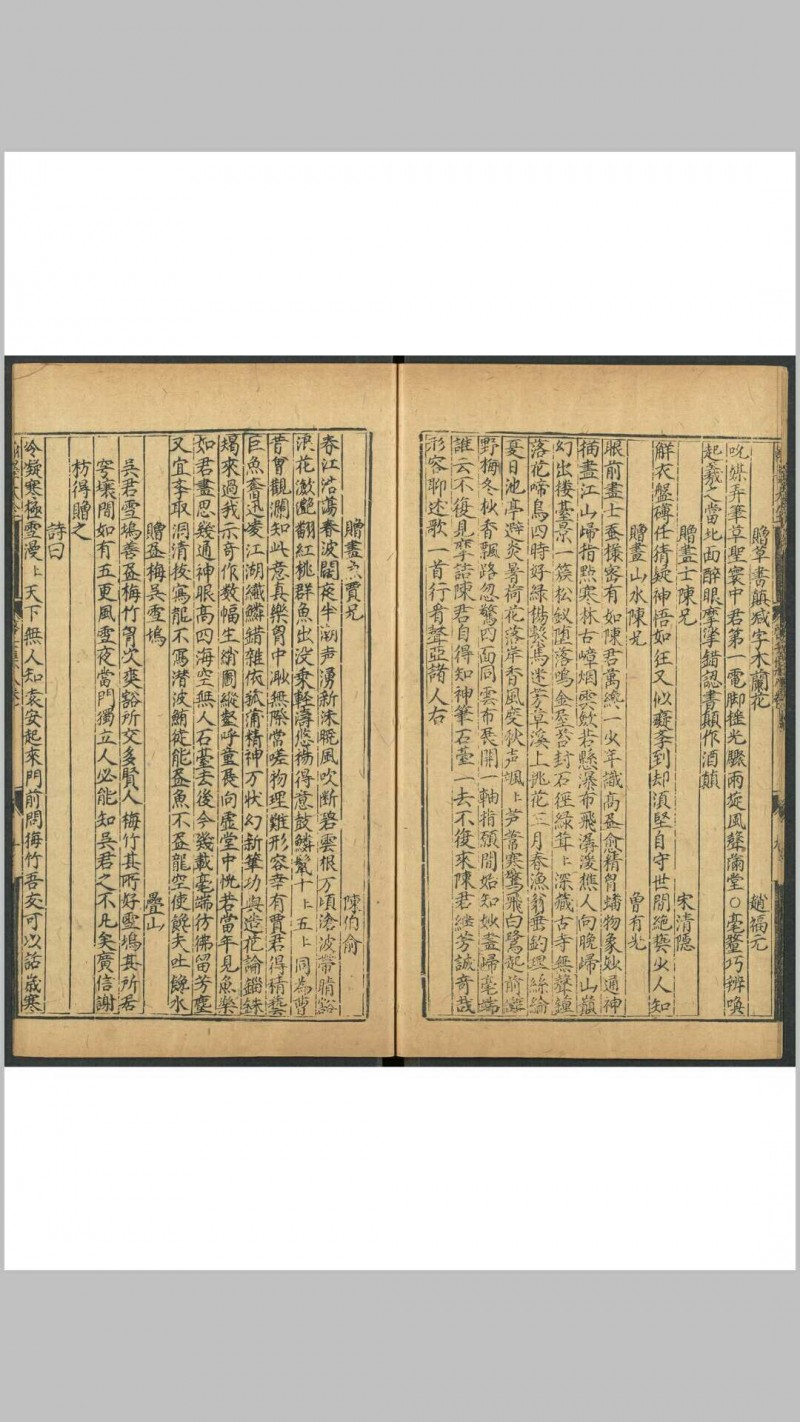 贈草書顛减字木蘭花　趙福元
吮媒弄筆草聖寰中君第一電脚搖光驟雨旋風聲滿堂○毫釐巧辨喚
起羲之當北面醉眼摩挲錯認書顛作酒顛
贈畫士陳兄　宋清隱
解衣盤礡任猜疑神悟如狂又似癡李到却須堅自守世間絕藝少人知
贈畫山水陳兄　曾有光
眼前畫士蚕㨾密有如陳君萬總一少年識高畫愈精胷蟠物象妙通神
描盡江山歸指點寒林古嶂烟雲歛若懸瀑布飛潺湲樵人向晚歸山巔
幻出楼臺景一簇松釵墮落鳴金屋苔封石徑綠茸〻深藏古寺無聲鐘
落花啼鳥四時好綠楊繫馬迷芳草溪上桃花三月春漁翁垂釣理絲綸
夏日池亭避炎暑荷花落岸香風度秋声颯〻芦葦寒驚飛白鷺起前灘
野梅冬秋香飄路忽驚四面同雲布展開一軸指顧間始知妙畫歸毫端
誰云不復見摩詰陳君自得知神筆石臺一去不復來陳君繼芳誠奇哉
形容聊述歌一首行看聲亞諸人右
贈畫魚賈兄　陳伯俞
春江浩蕩春波闊夜半湖声湧新沫晚風吹断碧雲根万頃滄波帶晴豁
浪花激灔翻紅桃群魚出没乗輕濤悠揚得意鼓鱗鬣十〻五〻同為曹
昔曾觀瀾知此意真樂胷中耿無際常嗟物理難形容幸有賈君得精藝
巨魚奮迅凌江湖纖鱗錯雜依菰蒲精神万状幻新筆功與造化論錙銖
朅來過我示奇作数幅生綃圖縱壑呼童展向虗堂中恍若當年見魚樂
如君畫思幾通神眼高四海空無人石臺去後今幾載毫端彷彿留芳塵
又宜李取洞清彼寫龍不寫潜波鮪從能畫魚不畫龍空使饞夫吐饞水
贈畫梅吳雪塢　疊山
吳君雪塢善畫梅竹胷次爽豁所交多賢人梅竹其所好雪塢其所居
穹壤間如有五更風雪夜當門獨立人必能知吳君之不凡矣廣信謝
枋得贈之
詩曰
冷凝寒極雪漫〻天下無人知袁安起來門前問梅竹吾交可以話歲寒